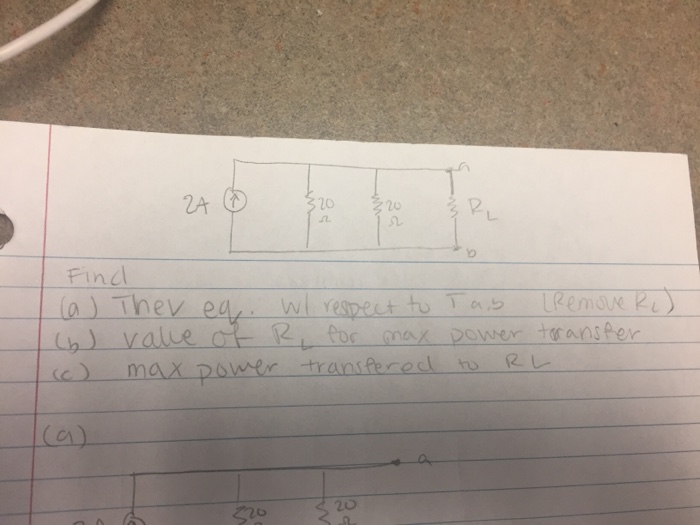 a
2A ↑ 20 Ω 20 Ω R_L
b
Find
(a) Thev eq. w/ respect to Ta,b (Remove R_L)
(b) value of R_L for max power transfer
(c) max power transfered to RL
(a)
a
20 20
Ω